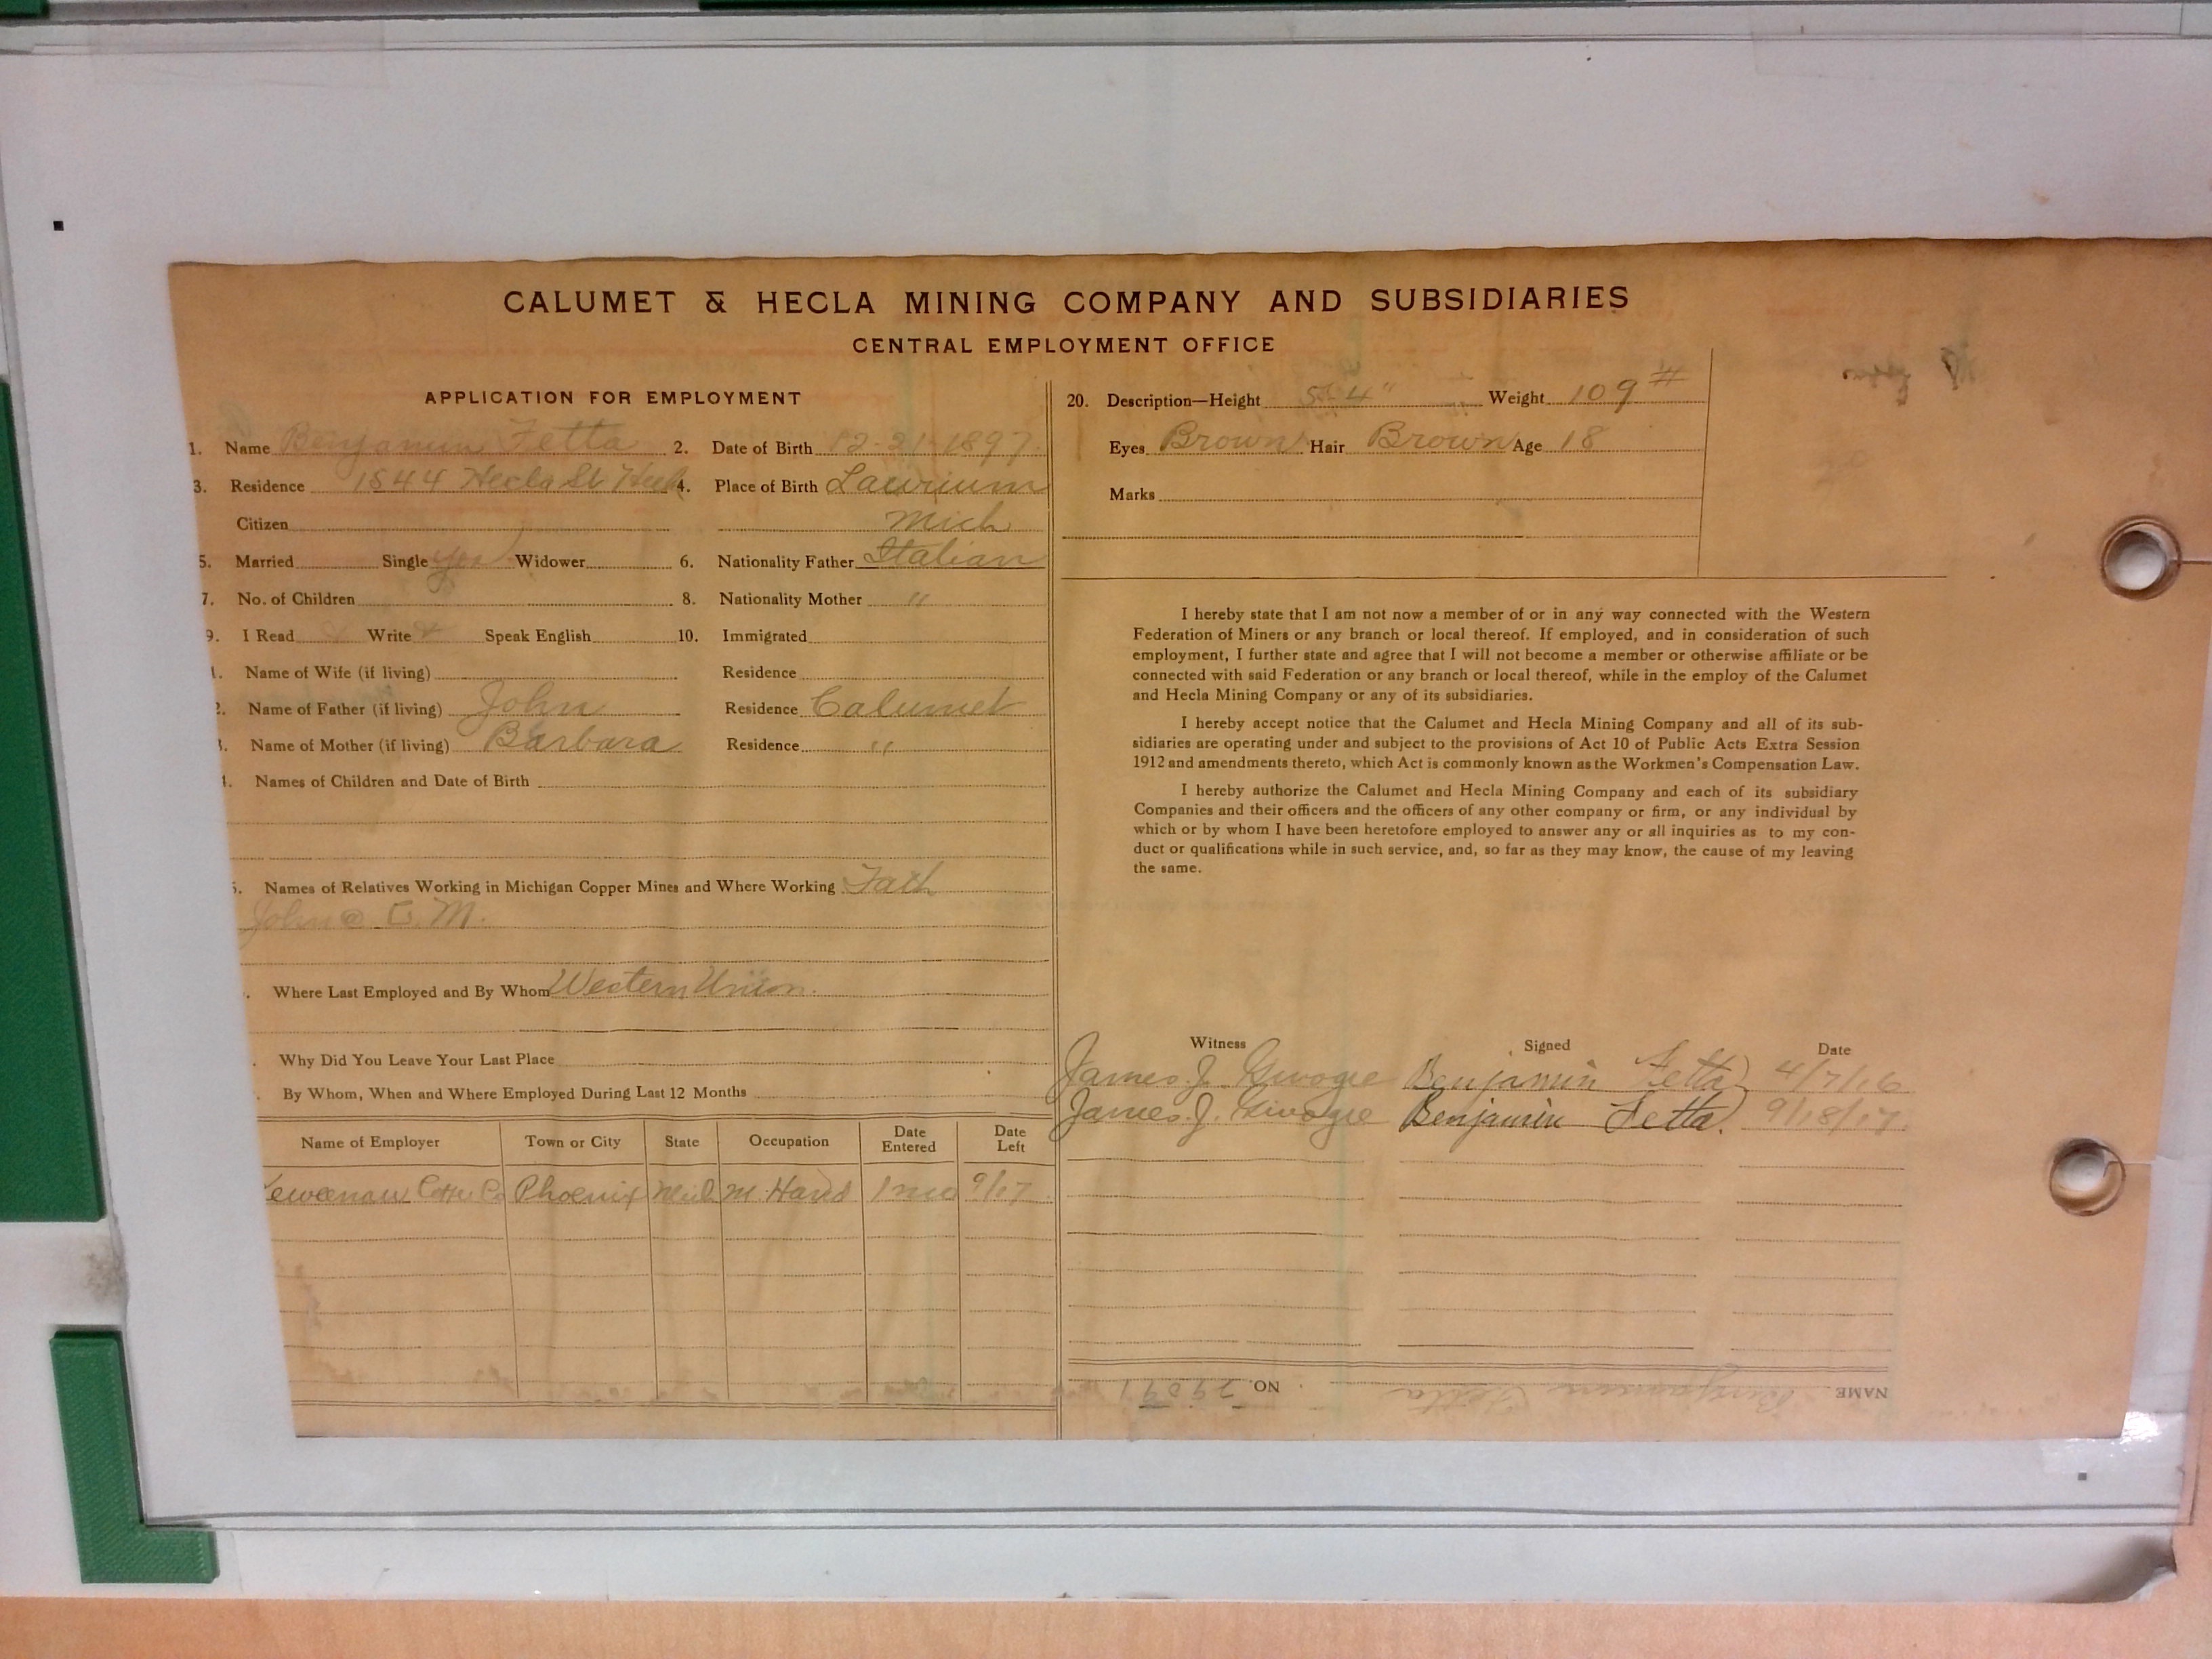 CALUMET & HECLA MINING COMPANY AND SUBSIDIARIES
CENTRAL EMPLOYMENT OFFICE
APPLICATION FOR EMPLOYMENT
1. Name Benjamin Fetta 2. Date of Birth 12-21-1897.
3. Residence 1544 Hecla St 4. Place of Birth Laurium
Citizen Mich
5. Married Single yes Widower 6. Nationality Father Italian
7. No. of Children 8. Nationality Mother "
9. I Read Write Speak English 10. Immigrated
Name of Wife (if living) Residence
Name of Father (if living) John Residence Calumet
Name of Mother (if living) Barbara Residence "
Names of Children and Date of Birth
Names of Relatives Working in Michigan Copper Mines and Where Working Fath
John @ C.M.
Where Last Employed and By Whom Western Union.
Why Did You Leave Your Last Place
By Whom, When and Where Employed During Last 12 Months
Name of Employer Town or City State Occupation Date Entered Date Left
eweenaw Phoenix Mich 1 mo 9/17
20. Description—Height 5-4" Weight 109#
Eyes Brown Hair Brown Age 18
Marks
I hereby state that I am not now a member of or in any way connected with the Western
Federation of Miners or any branch or local thereof. If employed, and in consideration of such
employment, I further state and agree that I will not become a member or otherwise affiliate or be
connected with said Federation or any branch or local thereof, while in the employ of the Calumet
and Hecla Mining Company or any of its subsidiaries.
I hereby accept notice that the Calumet and Hecla Mining Company and all of its sub-
sidiaries are operating under and subject to the provisions of Act 10 of Public Acts Extra Session
1912 and amendments thereto, which Act is commonly known as the Workmen's Compensation Law.
I hereby authorize the Calumet and Hecla Mining Company and each of its subsidiary
Companies and their officers and the officers of any other company or firm, or any individual by
which or by whom I have been heretofore employed to answer any or all inquiries as to my con-
duct or qualifications while in such service, and, so far as they may know, the cause of my leaving
the same.
Witness Signed Date
James J. Benjamin Fetta 4/7/16
James J. Benjamin Fetta. 9/18/17.
NAME Benjamin Fetta NO.